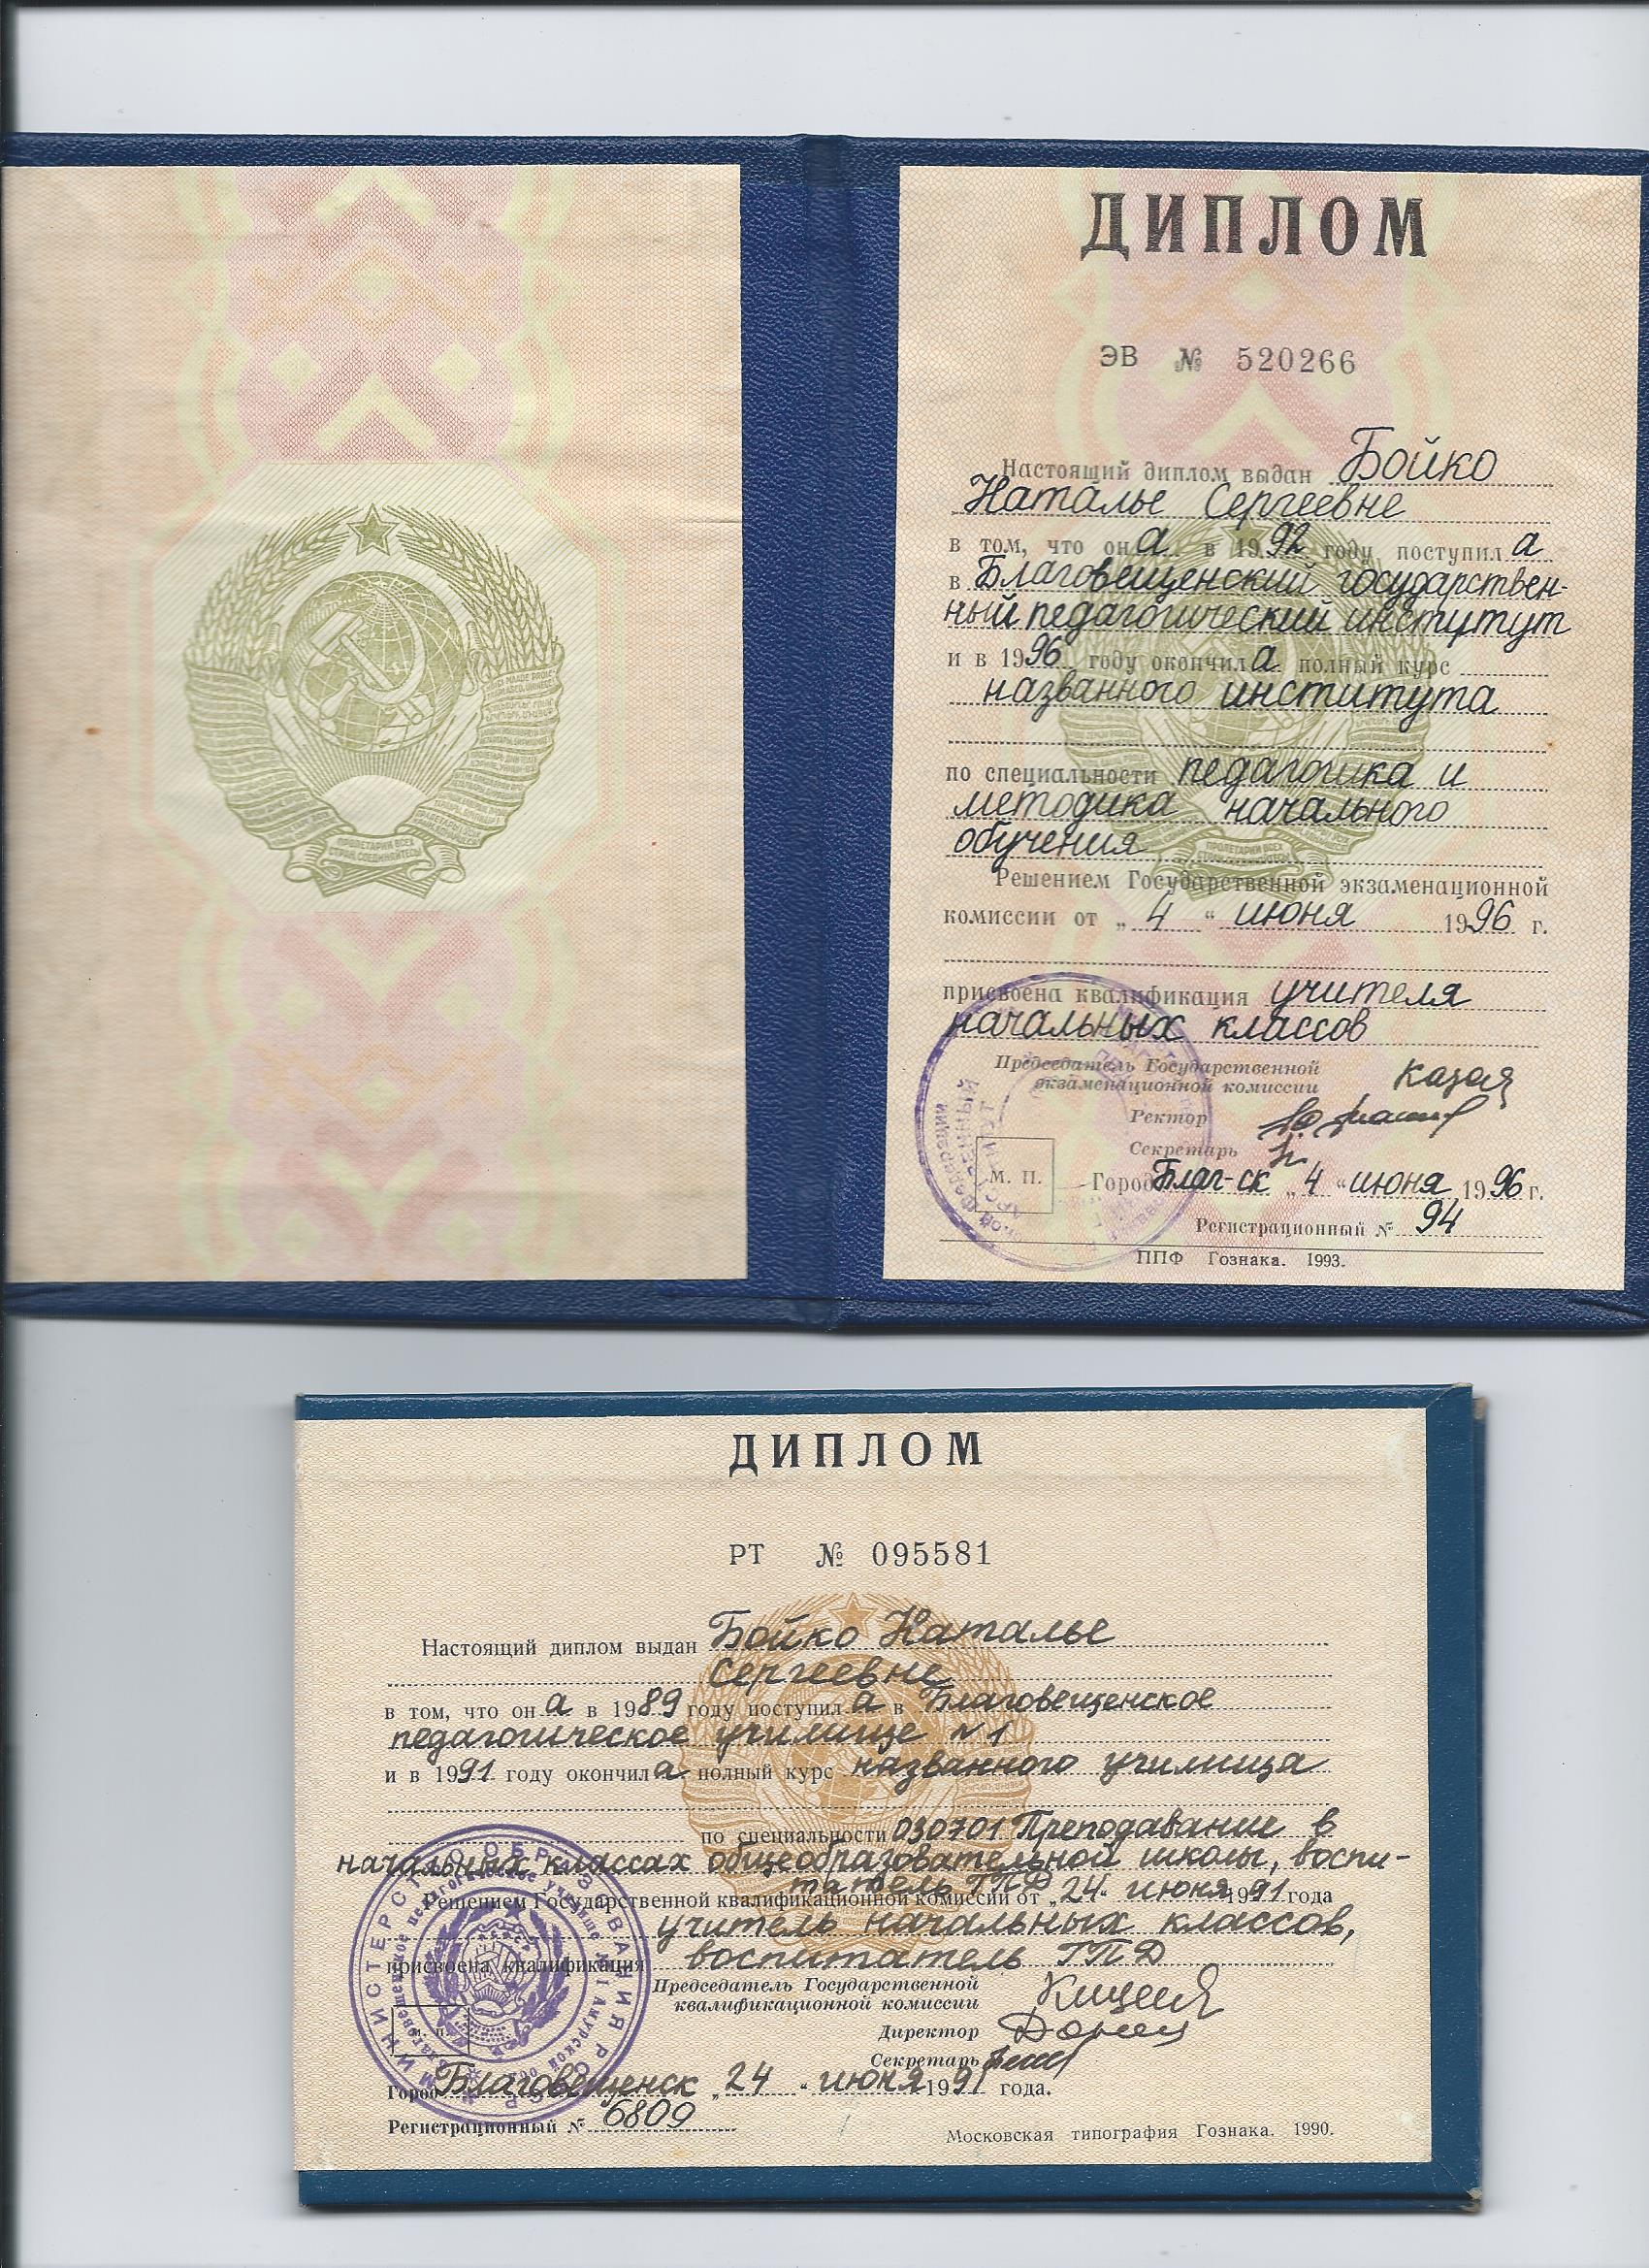 ДИПЛОМ
ЭВ № 520266
Настоящий диплом выдан Бойко
Наталье Сергеевне
в том, что она в 1992 году поступила
в Благовещенский государствен-
ный педагогический институт
и в 1996 году окончила полный курс
названного института
по специальности педагогика и
методика начального
обучения
Решением Государственной экзаменационной
комиссии от „4“ июня 1996 г.
присвоена квалификация учителя
начальных классов
Председатель Государственной
экзаменационной комиссии
Ректор
Секретарь
М. П.
Город Благ-ск „4“ июня 1996 г.
Регистрационный № 94
ППФ Гознака. 1993.
ПРОЛЕТАРИИ ВСЕХ
СТРАН, СОЕДИНЯЙТЕСЬ!
ДИПЛОМ
РТ № 095581
Настоящий диплом выдан Бойко Наталье
Сергеевне
в том, что она в 1989 году поступила в Благовещенское
педагогическое училище №1
и в 1991 году окончила полный курс названного училища
по специальности 030701 Преподавание в
начальных классах общеобразовательной школы, воспи-
татель ГПД
Решением Государственной квалификационной комиссии от „24“ июня 1991 года
учитель начальных классов,
присвоена квалификация воспитатель ГПД
Председатель Государственной
квалификационной комиссии
Директор
Секретарь
М. П.
Город Благовещенск „24“ июня 1991 года.
Регистрационный № 6809
Московская типография Гознака. 1990.